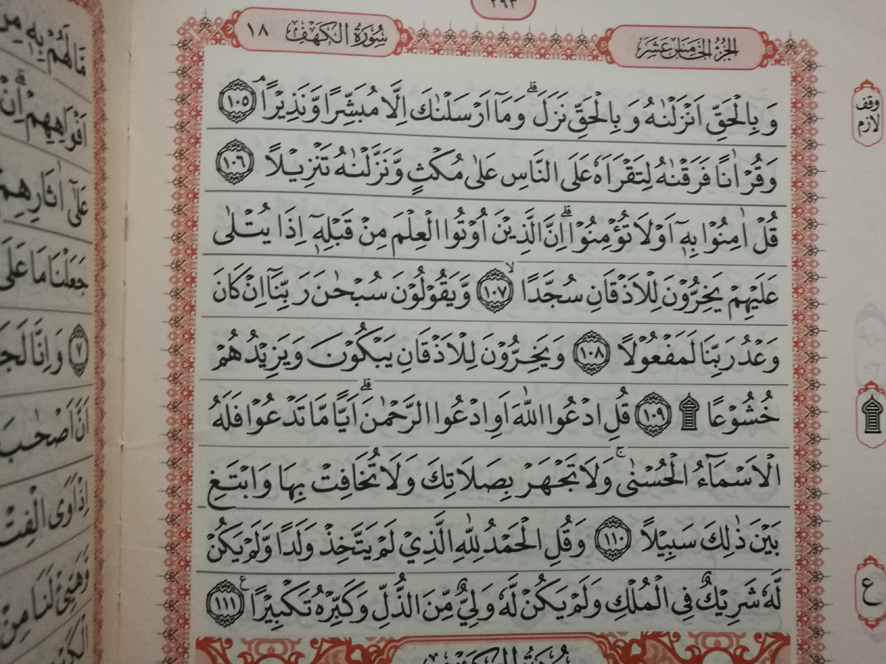 ٢٩٣
سُوْرَةُ الْكَهْفِ ١٨
الجزء الخامس عشر
وَبِالْحَقِّ اَنْزَلْنٰهُ وَبِالْحَقِّ نَزَلَۗ وَمَآ اَرْسَلْنٰكَ اِلَّا مُبَشِّرًا وَّنَذِيْرًاۘ ١٠٥
وَقُرْاٰنًا فَرَقْنٰهُ لِتَقْرَاَهٗ عَلَى النَّاسِ عَلٰى مُكْثٍ وَّنَزَّلْنٰهُ تَنْزِيْلًا ١٠٦
قُلْ اٰمِنُوْا بِهٖٓ اَوْ لَا تُؤْمِنُوْاۗ اِنَّ الَّذِيْنَ اُوْتُوا الْعِلْمَ مِنْ قَبْلِهٖٓ اِذَا يُتْلٰى
عَلَيْهِمْ يَخِرُّوْنَ لِلْاَذْقَانِ سُجَّدًاۙ ١٠٧ وَّيَقُوْلُوْنَ سُبْحٰنَ رَبِّنَآ اِنْ كَانَ
وَعْدُ رَبِّنَا لَمَفْعُوْلًا ١٠٨ وَيَخِرُّوْنَ لِلْاَذْقَانِ يَبْكُوْنَ وَيَزِيْدُهُمْ
خُشُوْعًا ۩ ١٠٩ قُلِ ادْعُوا اللّٰهَ اَوِ ادْعُوا الرَّحْمٰنَۗ اَيًّا مَّا تَدْعُوْا فَلَهُ
الْاَسْمَاۤءُ الْحُسْنٰىۚ وَلَا تَجْهَرْ بِصَلَاتِكَ وَلَا تُخَافِتْ بِهَا وَابْتَغِ
بَيْنَ ذٰلِكَ سَبِيْلًا ١١٠ وَقُلِ الْحَمْدُ لِلّٰهِ الَّذِيْ لَمْ يَتَّخِذْ وَلَدًا وَّلَمْ يَكُنْ
لَّهٗ شَرِيْكٌ فِى الْمُلْكِ وَلَمْ يَكُنْ لَّهٗ وَلِيٌّ مِّنَ الذُّلِّ وَكَبِّرْهُ تَكْبِيْرًا ࣖ ١١١
وقف
لازم
ع
مَا لَهُمْ بِهٖ مِنْ
اَفْوَاهِهِمْۗ اِنْ
عَلٰٓى اٰثَارِهِمْ
جَعَلْنَا مَا عَلَى
٧ وَاِنَّا لَجَ
اَنَّ اَصْحٰبَ
اِذْ اَوَى الْفِتْ
وَّهَيِّئْ لَنَا مِنْ